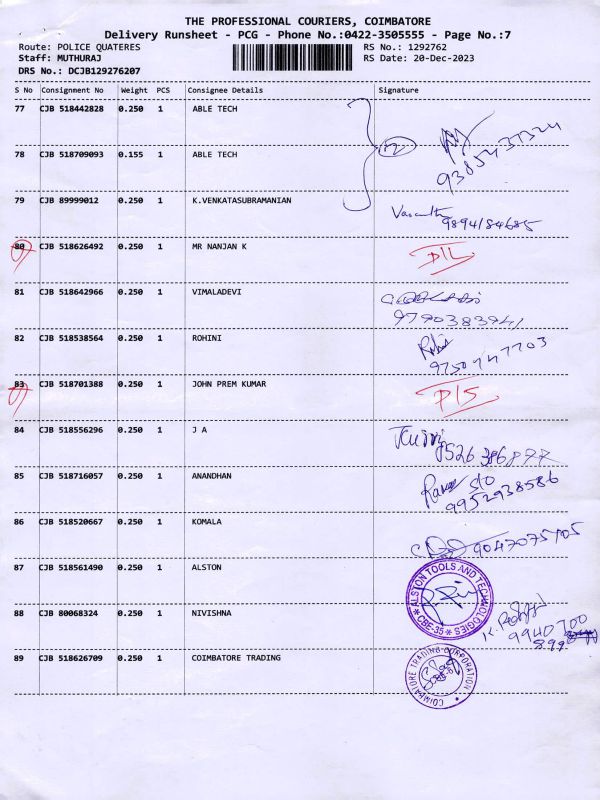 THE PROFESSIONAL COURIERS, COIMBATORE
Delivery Runsheet - PCG - Phone No.:0422-3505555 - Page No.:7
Route: POLICE QUATERES RS No.: 1292762
Staff: MUTHURAJ RS Date: 20-Dec-2023
DRS No.: DCJB129276207
S No Consignment No Weight PCS Consignee Details Signature
77 CJB 518442828 0.250 1 ABLE TECH
78 CJB 518709093 0.155 1 ABLE TECH 2
79 CJB 89999012 0.250 1 K.VENKATASUBRAMANIAN
9894184685
80 CJB 518626492 0.250 1 MR NANJAN K D/L
81 CJB 518642966 0.250 1 VIMALADEVI
9790383941
82 CJB 518538564 0.250 1 ROHINI
83 CJB 518701388 0.250 1 JOHN PREM KUMAR D/S
84 CJB 518556296 0.250 1 J A
85 CJB 518716057 0.250 1 ANANDHAN S/o
9952938586
86 CJB 518520667 0.250 1 KOMALA
87 CJB 518561490 0.250 1 ALSTON ALSTON TOOLS AND TECHNOLOGIES CBE-35
88 CJB 80068324 0.250 1 NIVISHNA 9940700
899
89 CJB 518626709 0.250 1 COIMBATORE TRADING COIMBATORE TRADING CORPORATION